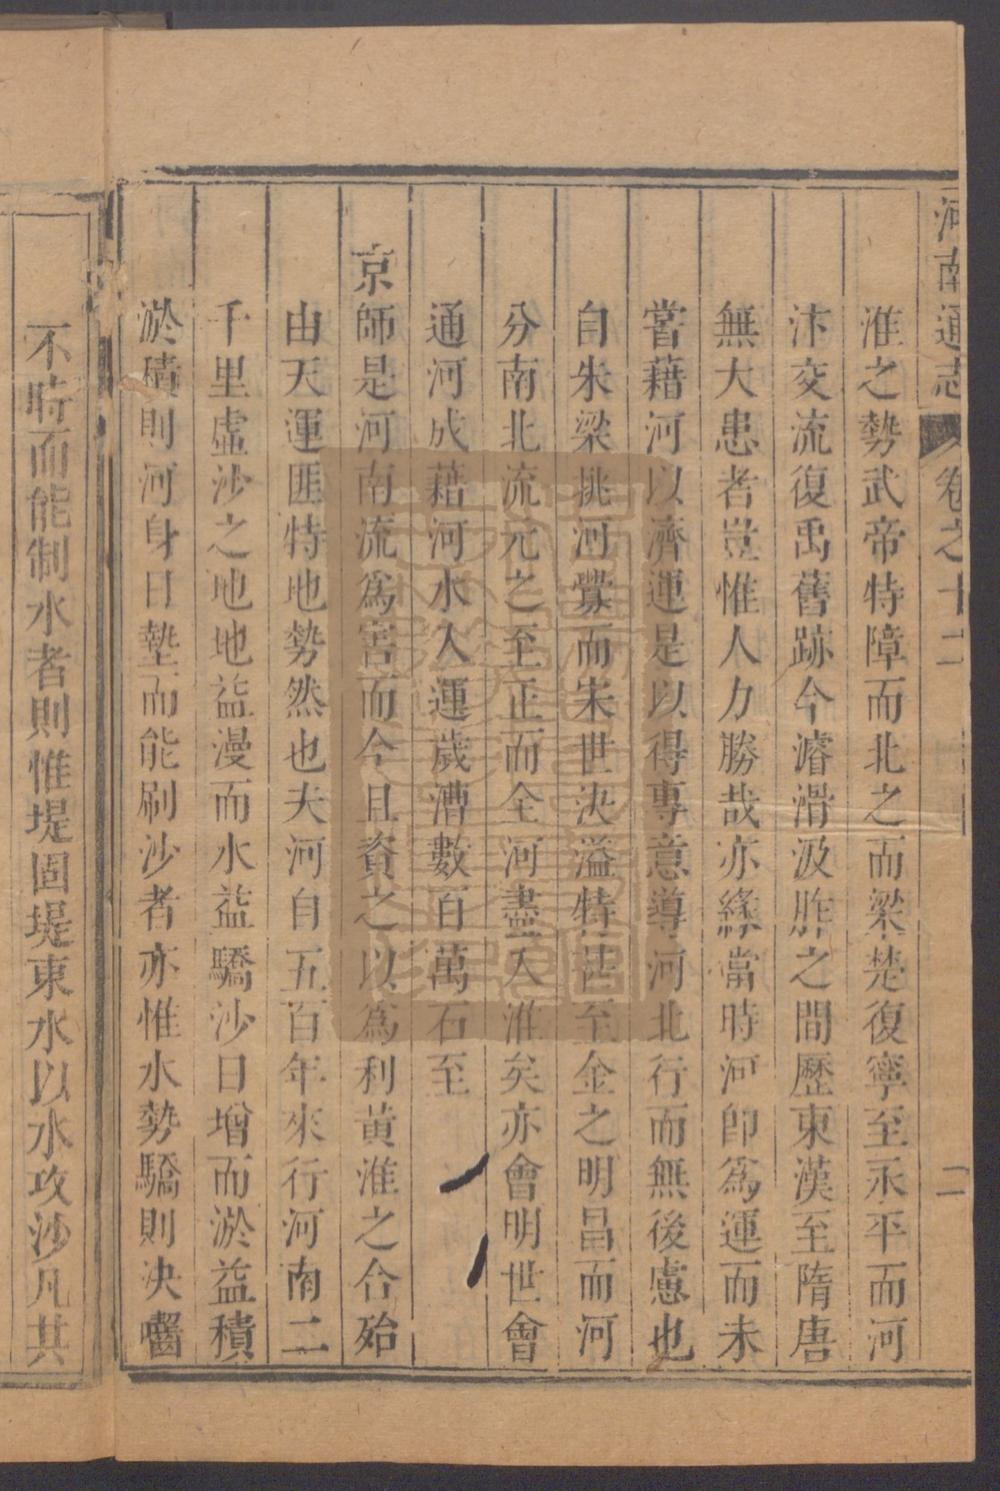 河南通志 卷之十二 二
淮之勢武帝特障而北之而梁楚復寧至永平而河
汴交流復禹舊跡今濬滑汲胙之間歷東漢至隋唐
無大患者豈惟人力勝哉亦緣當時河卽為運而未
嘗藉河以濟運是以得專意導河北行而無後慮也
自朱梁挑河釁而宋世決溢特甚至金之明昌而河
分南北流元之至正而全河盡入淮矣亦會明世會
通河成藉河水入運歲漕數百萬石至
京師是河南流為害而今且資之以為利黃淮之合殆
由天運匪特地勢然也夫河自五百年來行河南二
千里虛沙之地地益漫而水益驕沙日增而淤益積
淤積則河身日墊而能刷沙者亦惟水勢驕則決囓
不時而能制水者則惟堤固堤束水以水攻沙凡其